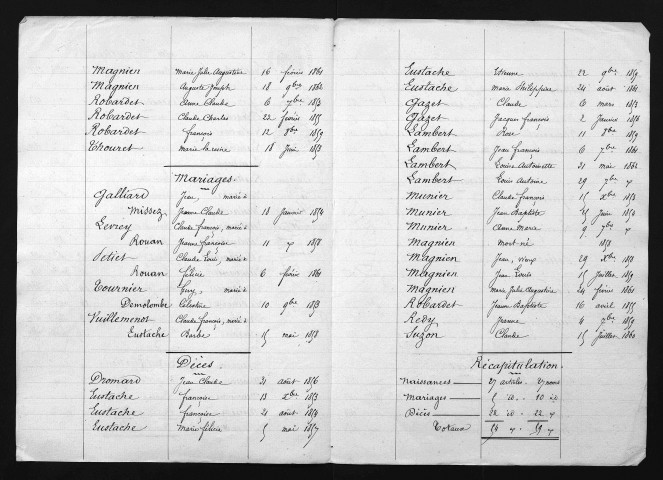 Magnien Marie Julie Augustine 16 février 1861
Magnien Auguste Joseph 18 9bre 1862
Robardet Claude 6 7bre 1853
Robardet Claude Charles 22 février 1855
Robardet françois 12 1859
Thouret Marie 18 Juin 1853
Mariages.
Galliard Jean, marié à
Missez Jeanne Claude 18 Janvier 1854
Levrey Claude françois, marié à
Rouan Jeanne françoise 11 " 1858
Petiet Claude Louis, marié à
Rouan félicie 6 février 1861
Tournier Guy, marié à
Demolombe Célestine 10 9bre 1853
Vuillemenot Claude françois, marié à
Eustache Barbe 15 mai 1858
Décès.
Dromard Jean Claude 21 août 1856
Eustache françoise 13 Xbre 1853
Eustache françoise 21 août 1854
Eustache Marie félicie 5 mai 1857
Eustache Etienne 22 9bre 1859
Eustache Marie Philippine 24 août 1861
Gazet Claude 6 mars 1853
Gazet Jacques françois 2 Janvier 1856
Lambert Rose 11 1859
Lambert Jean françois 6 7bre 1861
Lambert Louise Antoinette 21 mai 1862
Lambert Louis Antoine 29 7bre "
Munier Claude françois 15 Xbre 1853
Munier Jean Baptiste 25 Juin 1854
Munier Anne Marie 9 7bre "
Magnien mort né 1858
Magnien Jean, vieux 29 Xbre 1858
Magnien Jean Louis 15 Juillet 1859
Magnien Marie Julie Augustine 24 février 1861
Robardet Jeanne Baptiste 16 avril 1855
Redy Jeanne 4 9bre 1859
Suzon Claude 15 Juillet 1860
Récapitulation.
Naissances — 27 articles. 27 noms
Mariages — 5 id. 10 id
Décès — 22 id. 22 "
Totaux 54 " 59 "